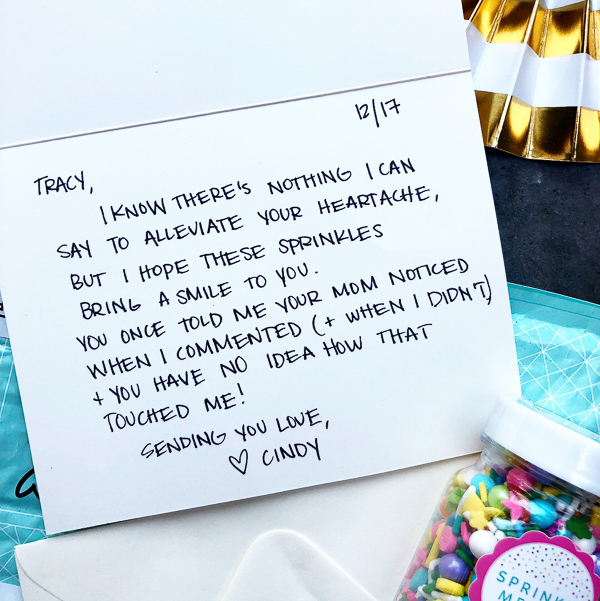 12/17
TRACY,
I KNOW THERE'S NOTHING I CAN
SAY TO ALLEVIATE YOUR HEARTACHE,
BUT I HOPE THESE SPRINKLES
BRING A SMILE TO YOU.
YOU ONCE TOLD ME YOUR MOM NOTICED
WHEN I COMMENTED (+ WHEN I DIDN'T)
+ YOU HAVE NO IDEA HOW THAT
TOUCHED ME!
SENDING YOU LOVE,
♡ CINDY